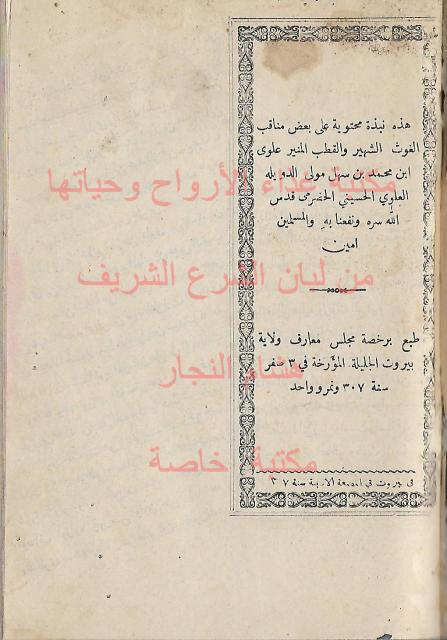 هذه نبذة محتوية على بعض مناقب
الغوث الشهير والقطب المنير علوى
ابن محمد بن سهل مولى الدويله
العلوي الحسيني الحضرمى قدس
الله سره ونفعنا به والمسلمين
امين
طبع برخصة مجلس معارف ولاية
بيروت الجليلة المؤرخة في ٣ صفر
سنة ٣٠٧ ونمرو واحد
فى بيروت فى سنة
مكتبة غذاء الأرواح وحياتها
من لبان الشرع الشريف
هشام النجار
مكتبة خاصة